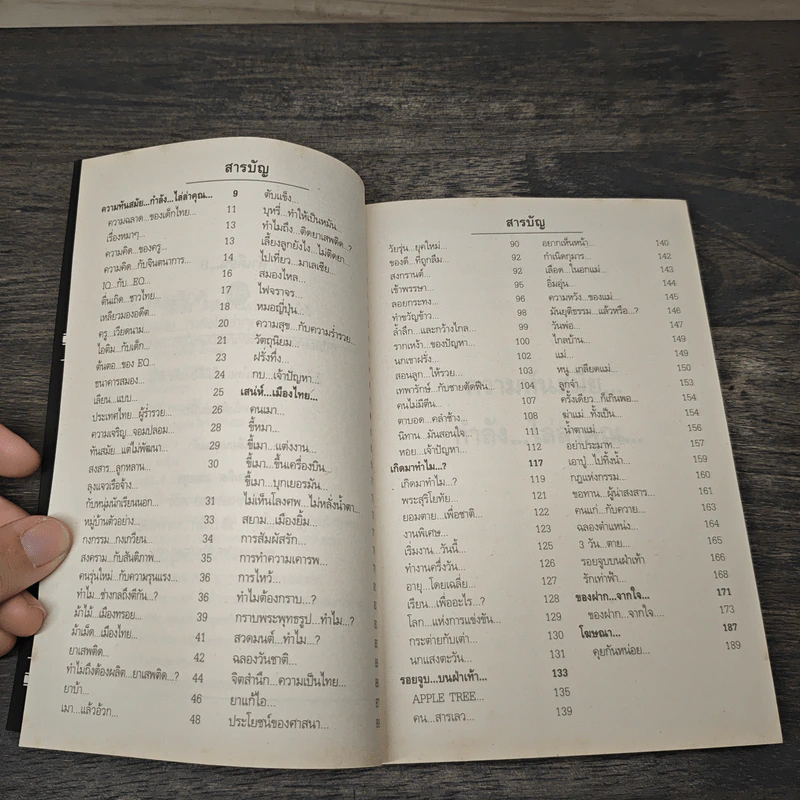 สารบัญ
ความทันสมัย...กำลัง...ไล่ล่าคุณ... 9
ความฉลาด...ของเด็กไทย... 11
เรื่องหมาๆ... 13
ความคิด...ของครู... 13
ความคิด...กับจินตนาการ... 14
IQ...กับ...EQ... 16
ตื่นเถิด...ชาวไทย... 17
เหลียวมองอดีต... 18
ครู...เวียดนาม... 20
ไอติม...กับเด็ก... 21
ต้นตอ...ของ EQ... 23
ธนาคารสมอง... 24
เลียน...แบบ... 25
ประเทศไทย...ผู้ร่ำรวย... 26
ความเจริญ...จอมปลอม... 28
ทันสมัย...แต่ไม่พัฒนา... 29
สงสาร...ลูกหลาน... 30
ลุงแจวเรือจ้าง...
กับหนุ่มนักเรียนนอก... 31
หมู่บ้านตัวอย่าง... 33
กงกรรม...กงเกวียน... 34
สงคราม...กับสันติภาพ... 35
คนรุ่นใหม่...กับความรุนแรง... 36
ทำไม...ช่างกลถึงตีกัน...? 36
ม้าไม้...เมืองทรอย... 39
ม้าเม็ด...เมืองไทย... 41
ยาเสพติด... 42
ทำไมถึงต้องผลิต...ยาเสพติด...? 44
ยาบ้า... 46
เมา...แล้วอ้วก... 48
ตับแข็ง...
บุหรี่...ทำให้เป็นหมัน...
ทำไมถึง...ติดยาเสพติด...?
เลี้ยงลูกยังไง...ไม่ติดยา...
ไปเที่ยว...มาเลเซีย...
สมองไหล...
ไฟจราจร...
หมอญี่ปุ่น...
ความสุข...กับความร่ำรวย...
วัตถุนิยม...
ฝรั่งทึ่ง...
กบ...เจ้าปัญหา...
เสน่ห์...เมืองไทย...
คนเมา...
ขี้หมา...
ขี้เมา...แต่งงาน...
ขี้เมา...ขึ้นเครื่องบิน...
ขี้เมา...บุกเยอรมัน...
ไม่เห็นโลงศพ...ไม่หลั่งน้ำตา...
สยาม...เมืองยิ้ม...
การสัมผัสรัก...
การทำความเคารพ...
การไหว้...
ทำไมต้องกราบ...?
กราบพระพุทธรูป...ทำไม...?
สวดมนต์...ทำไม...?
ฉลองวันชาติ...
จิตสำนึก...ความเป็นไทย...
ยาแก้ไอ...
ประโยชน์ของศาสนา...
สารบัญ
วัยรุ่น...ยุคใหม่... 90
ของดี...ที่ถูกลืม... 92
สงกรานต์... 92
เข้าพรรษา... 95
ลอยกระทง... 96
ทำขวัญข้าว... 98
ล้ำลึก...และกว้างไกล... 99
รากเหง้า...ของปัญหา... 100
นกเขาฝรั่ง... 102
สอนลูก...ให้รวย... 103
เทพารักษ์...กับชายตัดฟืน... 104
คนไม่มีตีน... 107
ตาบอด...คลำช้าง... 108
นิทาน...มันสอนใจ... 111
หอย...เจ้าปัญหา... 112
เกิดมาทำไม...? 117
เกิดมาทำไม...? 119
พระสุริโยทัย... 121
ยอมตาย...เพื่อชาติ... 122
งานพิเศษ... 123
เริ่มงาน...วันนี้... 125
ทำงานครึ่งวัน... 126
อายุ...โดยเฉลี่ย... 127
เรียน...เพื่ออะไร...? 128
โลก...แห่งการแข่งขัน... 129
กระต่ายกับเต่า... 130
นกแสงตะวัน... 131
รอยจูบ...บนฝ่าเท้า... 133
APPLE TREE... 135
คน...สารเลว... 139
อยากเห็นหน้า... 140
กำเนิดกุมาร... 142
เลือด...ในอกแม่... 143
อิ่มอุ่น... 144
ความหวัง...ของแม่... 145
มันยุติธรรม...แล้วหรือ...? 146
วันพ่อ... 147
ไกลบ้าน... 149
แม่... 149
หนู...เกลียดแม่... 150
ลูกจ๋า... 153
ครั้งเดียว...ก็เกินพอ... 154
ฆ่าแม่...ทั้งเป็น... 154
น้ำตาแม่... 156
อย่าประมาท... 157
เอาปู่...ไปทิ้งน้ำ... 159
กฎแห่งกรรม... 160
ขอทาน...ผู้น่าสงสาร... 161
คนแก่...กับควาย... 163
ฉลองตำแหน่ง... 164
3 วัน...ตาย... 165
รอยจูบบนฝ่าเท้า 166
รักเท่าฟ้า... 168
ของฝาก...จากใจ... 171
ของฝาก...จากใจ.... 173
โฆษณา... 187
คุยกันหน่อย... 189